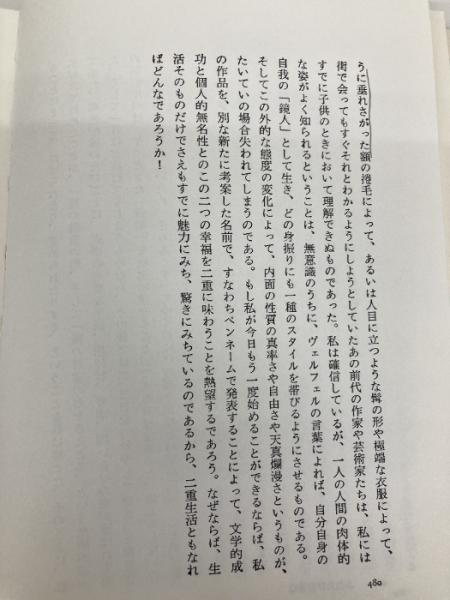 うに垂れさがった額の捲毛によって、あるいは人目に立つような髯の形や極端な衣服によって、
街で会ってもすぐそれとわかるようにしようとしていたあの前代の作家や芸術家たちは、私には
すでに子供のときにおいて理解できぬものであった。私は確信しているが、一人の人間の肉体的
な姿がよく知られるということは、無意識のうちに、ヴェルフェルの言葉によれば、自分自身の
自我の「鏡人」として生き、どの身振りにも一種のスタイルを帯びるようにさせるものである。
そしてこの外的な態度の変化によって、内面の性質の真率さや自由さや天真爛漫さというものが、
たいていの場合失われてしまうのである。もし私が今日もう一度始めることができるならば、私
の作品を、別な新たに考案した名前で、すなわちペンネームで発表することによって、文学的成
功と個人的無名性とのこの二つの幸福を二重に味わうことを熱望するであろう。なぜならば、生
活そのものだけでさえもすでに魅力にみち、驚きにみちているのであるから、二重生活ともなれ
ばどんなであろうか！
480